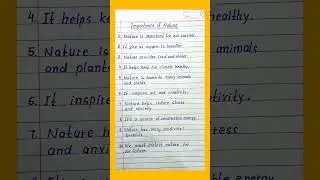 4. It helps ke
5. Nature is
and plants
6. It inspire
7. Nature h
and anxi
Importance of Nature
1. Nature is important for our survival.
2. It give us oxygen to breathe.
3. Nature provides food and water.
4. It helps keep our climate healthy.
5. Nature is home to many animals
and plants.
6. It inspires art and creativity.
7. Nature helps reduce stress
and anxiety.
8. It's a source of renewable energy.
9. Nature has many medicinal
benefits.
10. We must protect nature for
our future.
healthy.
animals
tivity.
le energy